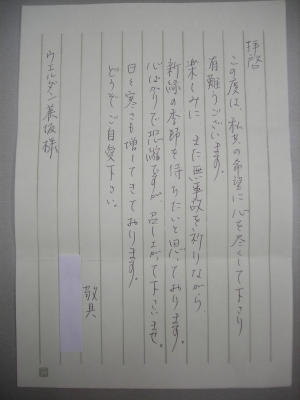 拝啓
この度は、私共の希望に心を尽くして下さり
有難うございます。
楽しみに また無事故を祈りながら
新緑の季節を待ちたいと思っております。
心ばかりで恐縮ですが、召し上がって下さいませ。
日々寒さも増してきております。
どうぞご自愛下さい。
敬具
ウェルダン 様